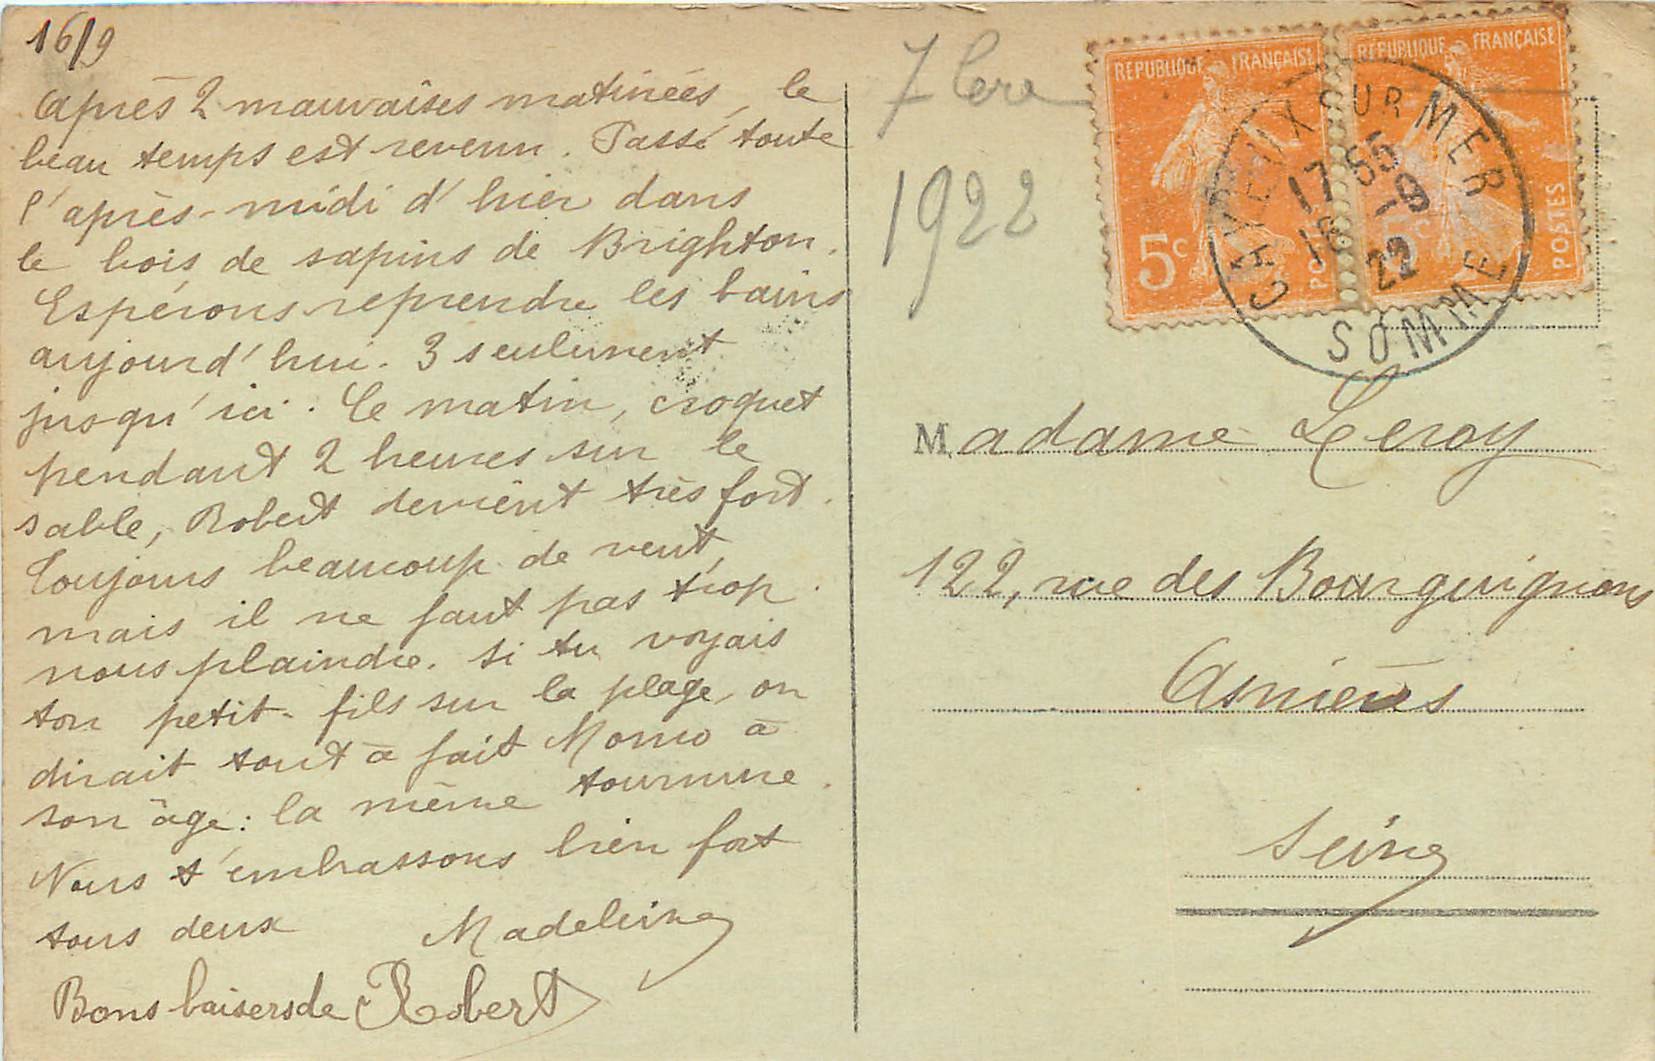 16/9
Après 2 mauvaises matinées, le
beau temps est revenu. Passé toute
l'après-midi d'hier dans
le bois de sapins de Brighton.
Espérons reprendre les bains
aujourd'hui. 3 seulement
jusqu'ici. Le matin, croquet
pendant 2 heures sur le
sable, Robert devient très fort.
Toujours beaucoup de vent,
mais il ne faut pas trop
nous plaindre. Si tu voyais
ton petit-fils sur la plage, on
dirait tout à fait Momo à
son âge: la même tournure.
Nous t'embrassons bien fort
tous deux Madeleine
Bons baisers de Robert
7bre
1922
REPUBLIQUE FRANÇAISE
5c
PO
REPUBLIQUE FRANÇAISE
5c
POSTES
CAYEUX SUR MER
17 55
16 -9
22
SOMME
Madame Leroy
122, rue des Bourguignons
Asnières
Seine